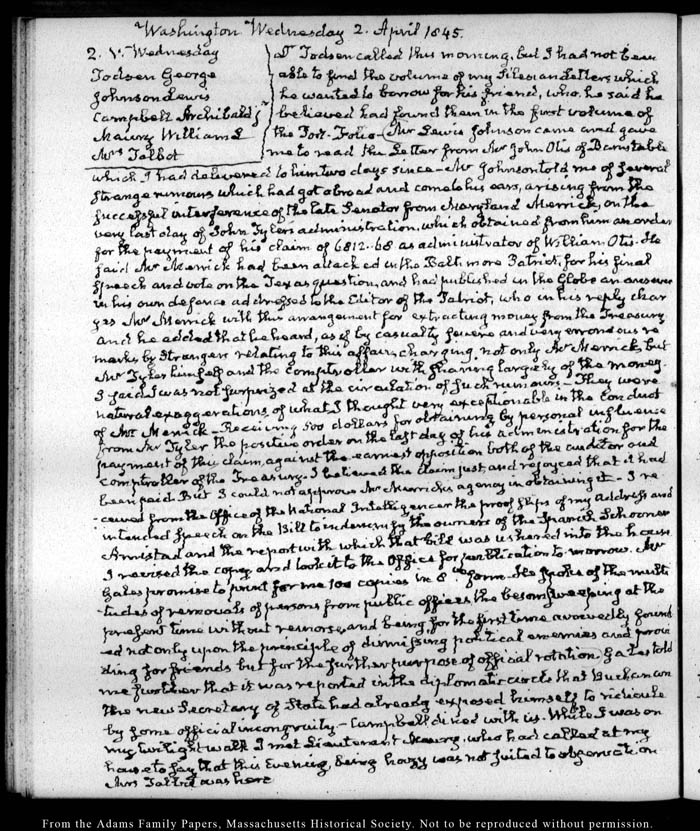 Washington Wednesday 2. April 1845.
2. V. Wednesday
Todsen George
Johnson Lewis
Campbell Archibald jr
Maury William L
Mrs Talbot
Dr Todsen called this morning, but I had not been
able to find the volume of my Silesian Letters which
he wanted to borrow for his friend, who, he said he
believed had found them in the first volume of
the Port-Folio — Mr Lewis Johnson came and gave
me to read the Letter from Mr John Otis of Barnstable
which I had delivered to him two days since — Mr Johnson told me of several
strange rumours which had got abroad and come to his ears, arising from the
successful interference of the late Senator from Maryland Merrick, on the
very last day of John Tyler's administration, which obtained from him an order
for the payment of his claim of 6812.68 as administrator of William Otis. He
said Mr Merrick had been attacked in the Baltimore Patriot, for his final
speech and vote on the Texas question, and had published in the Globe an answer
in his own defence addressed to the Editor of the Patriot, who in his reply char
ges Mr Merrick with this arrangement for extracting money from the Treasury
and he added that he heard, as if by casualty severe and very erroneous re
marks by strangers relating to this affair, charging, not only Mr Merrick, but
Mr Tyler himself and the Comptroller with sharing largely of the money.
I said I was not surprized at the circulation of such rumours — They were
natural exaggerations of what I thought very exceptionable in the conduct
of Mr Merrick — Receiving 500 dollars for obtaining by personal influence
from Mr Tyler the positive order on the last day of his administration for the
payment of this claim, against the earnest opposition both of the auditor and
comptroller of the Treasury. I believed the claim just, and rejoyced that it had
been paid. But I could not approve Mr Merrick's agency in obtaining it — I re
-ceived from the Office of the National Intelligencer the proof slips of my Address and
intended speech on the Bill to indemnify the owners of the Spanish Schooner
Amistad and the report with which that bill was ushered into the house
I revised the copy and took it to the Office for publication to-morrow. Mr
Gales promises to print for me 100 copies in 8vo form. He spoke of the multi
tudes of removals of persons from public offices, the besom sweeping at the
present time without remorse, and being for the first time avowedly found
ed not only upon the principle of dismissing political enemies and provi
ding for friends but for the further purpose of official rotation. Gales told
me further that it was reported in the diplomatic circle that Buchanan
the new Secretary of State had already exposed himself to ridicule
by some official incongruity — Campbell dined with us. While I was on
my twilight walk I met Lieutenant Maury, who had called at my
house to say that this Evening, being hazy was not suited to observation
Mrs Talbot was here
From the Adams Family Papers, Massachusetts Historical Society. Not to be reproduced without permission.